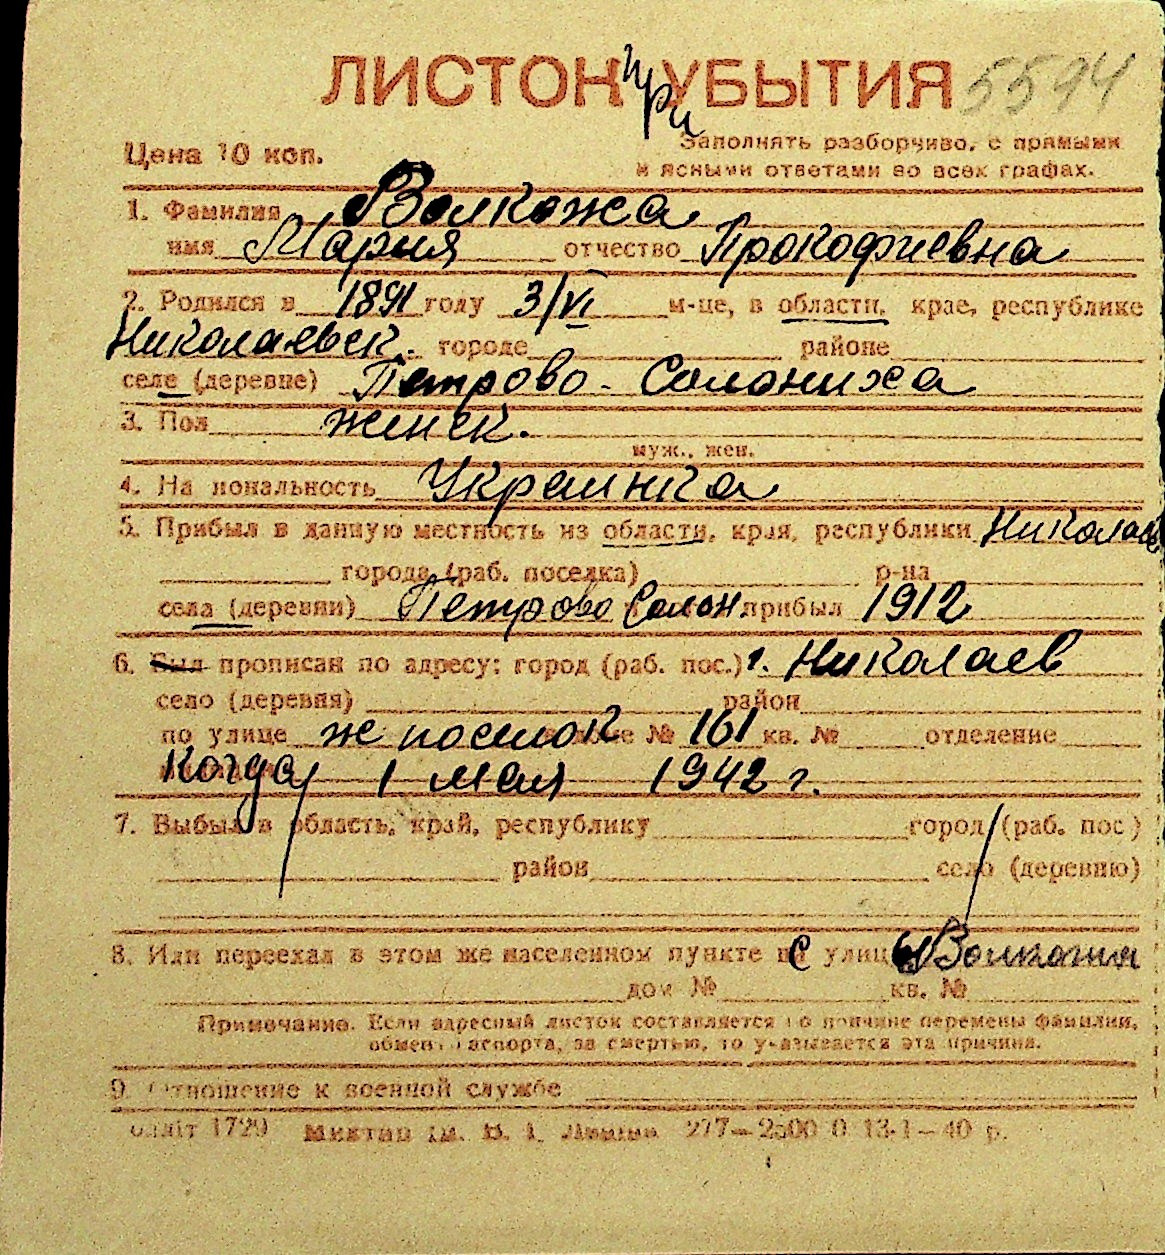 ЛИСТОК при УБЫТИЯ 5594
Цена 10 коп.
Заполнять разборчиво, с прямыми
и ясными ответами во всех графах.
1. Фамилия Волкожа
имя Мария отчество Прокофиевна
2. Родился в 1891 году 3/VI м-це, в области, крае, республике
Николаевск. городе районе
селе (деревне) Петрово-Солониха
3. Пол женск.
муж., жен.
4. На иональность Украинка
5. Прибыл в данную местность из области, края, республики Николаев
города (раб. поселка) р-на
села (деревни) Петрово Солон прибыл 1912
6. Был прописан по адресу: город (раб. пос.) г. Николаев
село (деревня) район
по улице ж поселок № 161 кв. № отделение
когда 1 мая 1942 г.
7. Выбыл в область, край, республику город (раб. пос.)
район село (деревню)
8. Или переехал в этом же населенном пункте улиц
дом № кв. №
Примечание. Если адресный листок составляется по причине перемены фамилии,
обмен паспорта, за смертью, то указывается эта причина.
9. Отношение к военной службе
1729 277—2500 0 13-1—40 р.